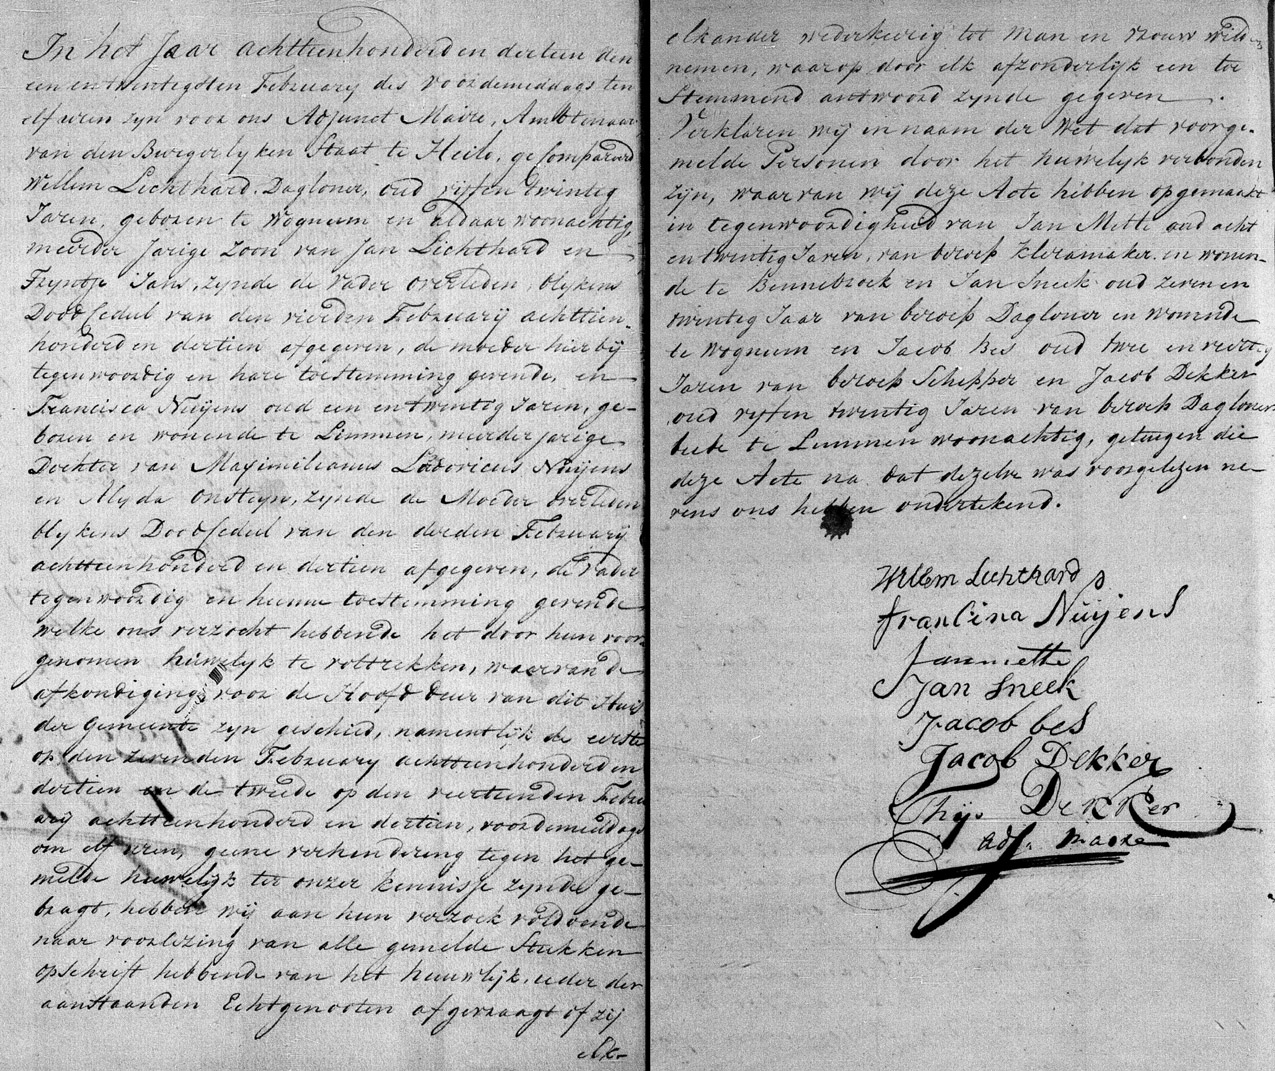 In het Jaar achttienhonderd en dertien den
een en twentigsten February des voordemiddags ten
elf uren zyn voor ons Adjunct Maire, Ambtenaar
van den Burgerlyken Staat te Heilo, gecompareerd
Willem Lichthard, Dagloner, oud vyften twinteg
Jaren, geboren te Wognum en aldaar woonachtig,
meerder jarige zoon van Jan Lichthard en
Tryntje Jans, zynde de vader overleden, blykens
Doodcedul van den vierden Februarij achttien-
honderd en dertien afgegeven, de moeder hier bij
tegenwoordig en hare toestemming gevende, en
Francisca Nuijens oud een en twentig Jaren, ge-
boren en wonende te Limmen, meerder jarige
Dochter van Maximilianus Lodovicus Nuijens
en Alyda Onsteyn, zynde de Moeder overleden
blykens Doodcedul van den derden Februarij
achttienhonderd en dertien afgegeven, de vader
tegenwoordig en heure toestemming gevende
welke ons verzocht hebbende het door hun voor
genomen huwelyk te voltrekken, waarvan de
afkondiging voor de Hoofd deur van dit Huis
der Gemeente zyn geschied, namentlijk de eerste
op den zevenden February achttienhonderd en
dertien en de tweede op den veertienden Febru
arij achttienhonderd en dertien, voordemiddags
om elf uren, geene verhindering tegen het ge-
melde huwelijk ter onzer kennisse zynde ge-
bragt, hebben wij aan hun verzoek voldoende
naar voorlezing van alle gemelde Stukken
opschrift hebbende van het huuwlijk, ieder der
aanstaanden Echtgenooten afgevraagt of zij
elk-
elkander wederkeerig tot Man en vrouw wild-
nemen, waar op door elk afzonderlijk een toe
Stemmend antwoord zynde gegeven.
Verklaren wij in naam der Wet dat voorge-
melde Personen door het huwelijk verbonden
zijn, waar van wij deze Acte hebben opgemaakt
in tegenwoordigheid van Jan Mette oud acht
en twentig Jaren, van beroep klermaker en wonen-
de te Bennebroek en Jan Sneek oud zeven en
twinteg Jaar van beroep Dagloner en wonende
te Wognum en Jacob Bes oud twee en veertig
Jaren van beroep Schipper en Jacob Dekker
oud vyften twentig Jaren van beroep Dagloner
beide te Limmen woonachtig, getuigen die
deze Acte na dat dezelve was voorgelezen ne-
vens ons hebben ondertekend.
Willem Lichthard
Francina Nuijens
Jan mette
Jan Sneek
Jacob bes
Jacob Dekker
Thijs Dekker
adj. Maire